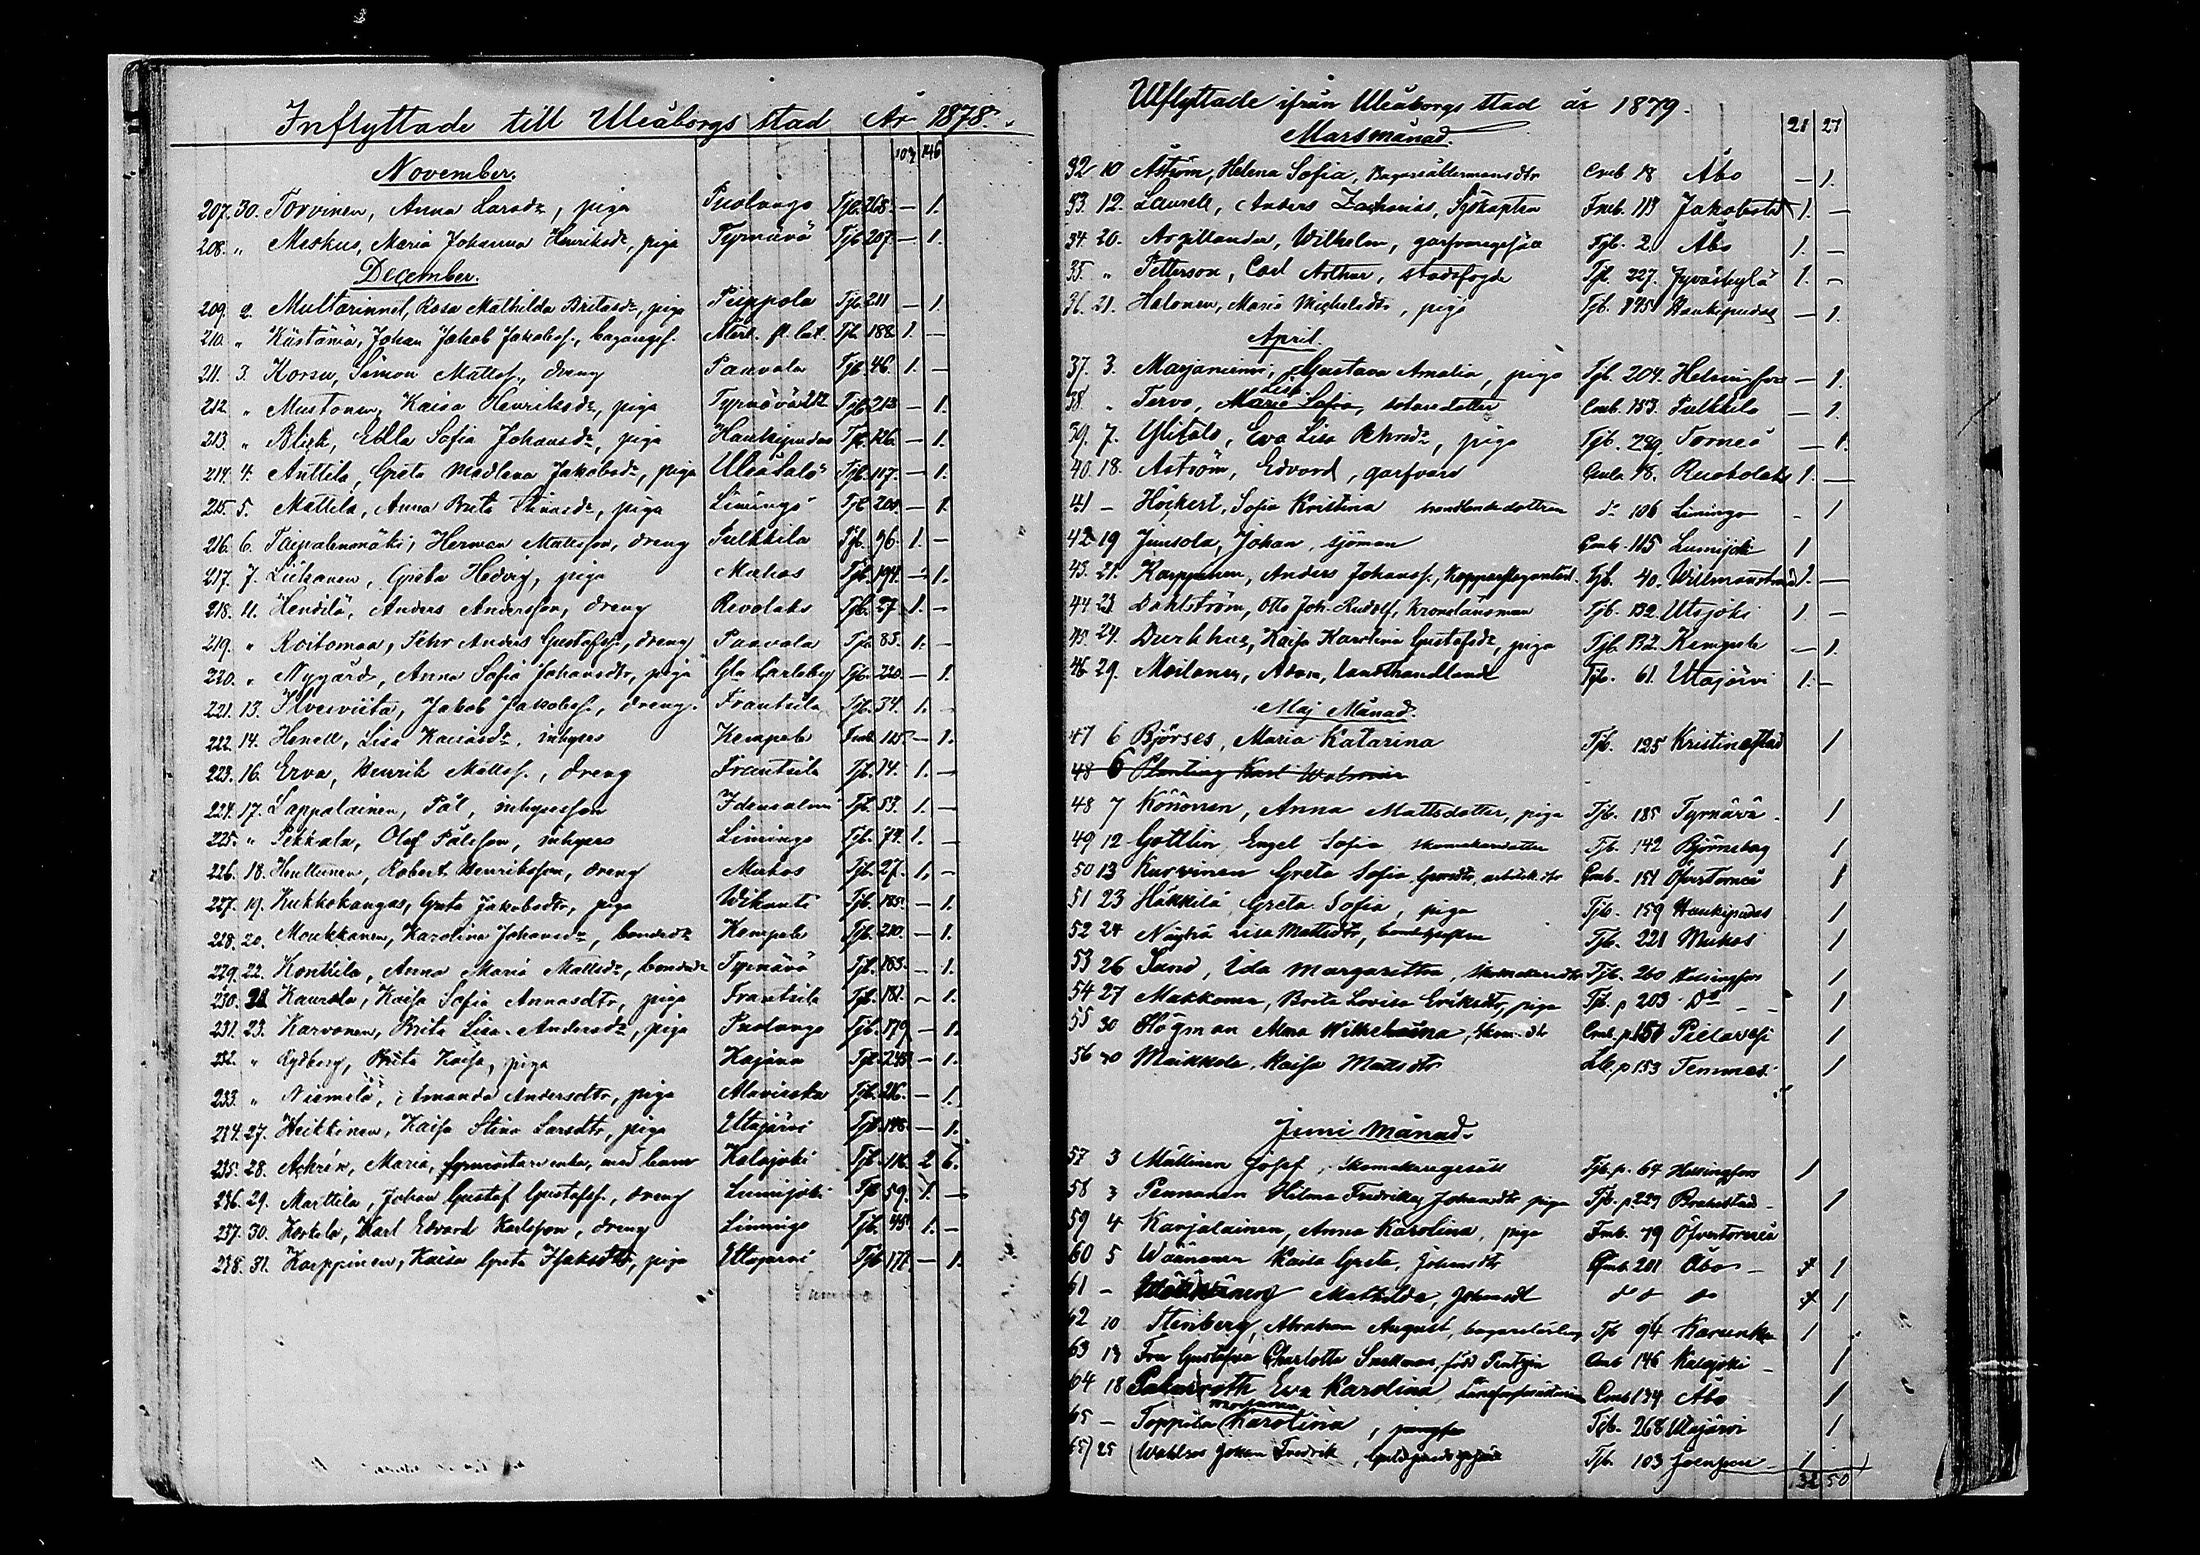 Inflyttade till Uleåborgs stad År 1878.
103 146
November.
207. 30. Torvinen, Anna Larsdr, piga Puolango Tjb. 268. — 1.
208. " Meskus, Maria Johanna Henriksdr, piga Tyrnävä Tjb 207. — 1.
December.
209. 2. Multarinnet, Rosa Mathilda Britasdr, piga Piippola Tjb. 211 — 1.
210. " Johan Jakob Jakobss. Tjb. 188. 1. —
211. 3. Korsu, Simon Mattss., dreng Paavola Tjb. 46. 1. —
212. " Mustonen, Kaisa Henriksdr, piga Tyrnävä Tjb. 213 — 1.
213. " Blick, Edla Sofia Johansdr, piga Haukipudas Tjb. 126. — 1.
214. 4. Anttila, Greta Madlena Jakobsdr, piga Uleåsalo Tjb. 117. — 1.
215. 5. Mattila, Anna Brita piga Limingo Tjb. 200. — 1.
216. 6. Taipalenmäki, Herman Matsson, dreng Pulkkila Tjb. 96. 1. —
217. 7. Liihanen, Greta Hedvig, piga Muhos Tjb. 194. — 1.
218. 11. Anders Andersson, dreng Revolaks Tjb. 27. 1. —
219. " Koitomaa, Petr Anders Gustafss., dreng Paavola Tjb. 83. 1. —
220. " Nygård, Anna Sofia Johansdtr, piga Gla Carleby Tjb. 220. — 1.
221. 13. Jakob Jakobss., dreng. Frantsila Tjb. 34. 1. —
222. 14. Lisa inhyses Kempele 1.
223. 16. Erva, Henrik Mattss., dreng Frantsila Tjb. 14. 1. —
224. 17. Lappalainen, Pål, inhysesson Idensalmi Tjb. 53. 1. —
225. " Pekkala, Olof Pålsson, inhyses Limingo Tjb. 74. 1. —
226. 18. Huttunen, Robert Henriksson, dreng Muhos Tjb. 27. 1. —
227. 19. Kukkokangas, Greta Jakobsdtr, piga Wihanti Tjb. 185. — 1.
228. 20. Moukkanen, Karolina Johansdr, bondedr Kempele Tjb. 210. — 1.
229. 22. Konttila, Anna Maria Mattsdr, bondedr Tyrnävä Tjb. 183. — 1.
230. Kaurala, Kaisa Sofia Annasdtr, piga Frantsila Tjb. 181. — 1.
231. 23. Karvonen, Brita Lisa Andersdr, piga Puolango Tjb. 179 — 1.
232. " Rydberg, Brita Kaisa, piga Kajana Tjb. — 1.
233. " Niemelä, Amanda Andersdtr, piga Alavieska Tjb. 216. — 1.
234. 27. Heikkinen, Kaisa Stina Larsdtr, piga Utajärvi Tjb. — 1.
235. 28. Achrén, Maria, med barn Kalajoki Tjb. 2 6.
236. 29. Marttila, Johan Gustaf Gustafss., dreng Lumijoki Tjb. 59. 1. —
237. 30. Karl Edvard Karlsson, dreng Limingo Tjb. 45. 1. —
238. 31. Karppinen, Kaisa Greta Isaksdtr, piga Utajärvi Tjb. — 1.
Utflyttade ifrån Uleåborgs stad år 1879.
21 27
Marsmånad.
32 10 Åström, Helena Sofia, Bagareåldermansdtr Cmb 18 Åbo — 1.
33. 12. Laurell, Anders Zacharias, Sjökapten Fmb. 113 Jakobstad 1. —
34. 20. Argillander, Wilhelm, garfvaregesäll Tjb. 2 Åbo 1. —
35. " Petterson, Carl Arthur, stadsfogde Tjb. 227. Jyväskylä 1. —
36. 21. Halonen, Maria Michelsdtr, piga Tjb. 175 Haukipudas — 1.
April.
37. 3. Marjaniemi, Gustava Amalia, piga Tjb. 204. Helsingfors — 1.
38. " Tervo, Maria Lisa Sofia, dotter Cmb. 153. Pulkkila — 1.
39. 7. Ylitalo, Eva Lisa Petrsdr, piga Tjb. 289. Torneå — 1.
40. 18. Åström, Edvard, garfvare Cmb. 18. Ruokolaks 1. —
41 — Höckert, Sofia Kristina handlandedottren do 106 Limingo — 1
42 19 Junsola, Johan, sjöman Cmb. 115 Lumijoki 1
43. 21. Karppinen, Anders Johanss., Tjb. 40. Wilmanstrand 1. —
44. 23. Dahlström, Otto Joh. Rudolf, Kronolänsman Tjb. 132. Utsjoki 1 —
45. 24. Kaisa Karolina Gustafsdr, piga Tjb. 132. Kempele — 1.
46. 29. Moilanen, Adam, landthandlande Tjb. 61. Utajärvi 1. —
Maj Månad.
47 6 Björses, Maria Katarina Tjb. 125 Kristinestad 1
48 6 Planting Karl Walmar
48 7 Könönen, Anna Mattsdotter, piga Tjb. 185 Tyrnävä. 1
49 12 Gottlin Engel Sofia skomakaredotter Tjb. 142 Björneborg 1
50 13 Kurvinen Greta Sofia Cmb. 151 Öfvertorneå 1
51 23 Häkkilä Greta Sofia, piga Tjb. 159 Haukipudas 1
52 24 Lisa Mattsdtr, Tjb. 221 Muhos 1
53 26 Sand, Ida Margaretha, skomakaredtr Tjb. 260 Helsingfors 1
54 27 Makkoma, Brita Lovisa Eriksdtr, piga Tjb. p 203 Do — 1
55 30 Högman Alma Wilhelmina, Skom. dtr Cmb. p. 151 Pielavesi 1
56 30 Maikkola, Kaisa Mattsdtr Lb. p 153 Temmes. 1
Juni Månad.
57 3 Mattinen Josef, Skomakaregesäll Tjb. p. 64 Helsingfors 1
58 3 Pennanen Hilma Fredrika, Johansdtr piga Tjb. p. 229 Brahestad — 1
59 4 Karjalainen, Anna Karolina, piga Fmb. 79 Öfvertorneå
60 5 Wäänänen Kaisa Greta, Johansdtr Cmb. 201 Åbo — 1
61 — Mathilda, Johansdt do do 1
62 10 Stenberg, Abraham August, bagarelärling Tjb 94 Karunki 1
63 13 Fru Gustafva Charlotta Snellman, född Pentzin Cmb 146 Kalajoki — 1
64 18 Palmroth Eva Karolina Cmb 134 Åbo 1
65 — Toppila Karolina, jungfru Tjb. 268 Utajärvi 1
65) 25 (Wahlros Johan Fredrik, Guldsmedsgesäll Tjb. 103 Joensuu — 1
32 50